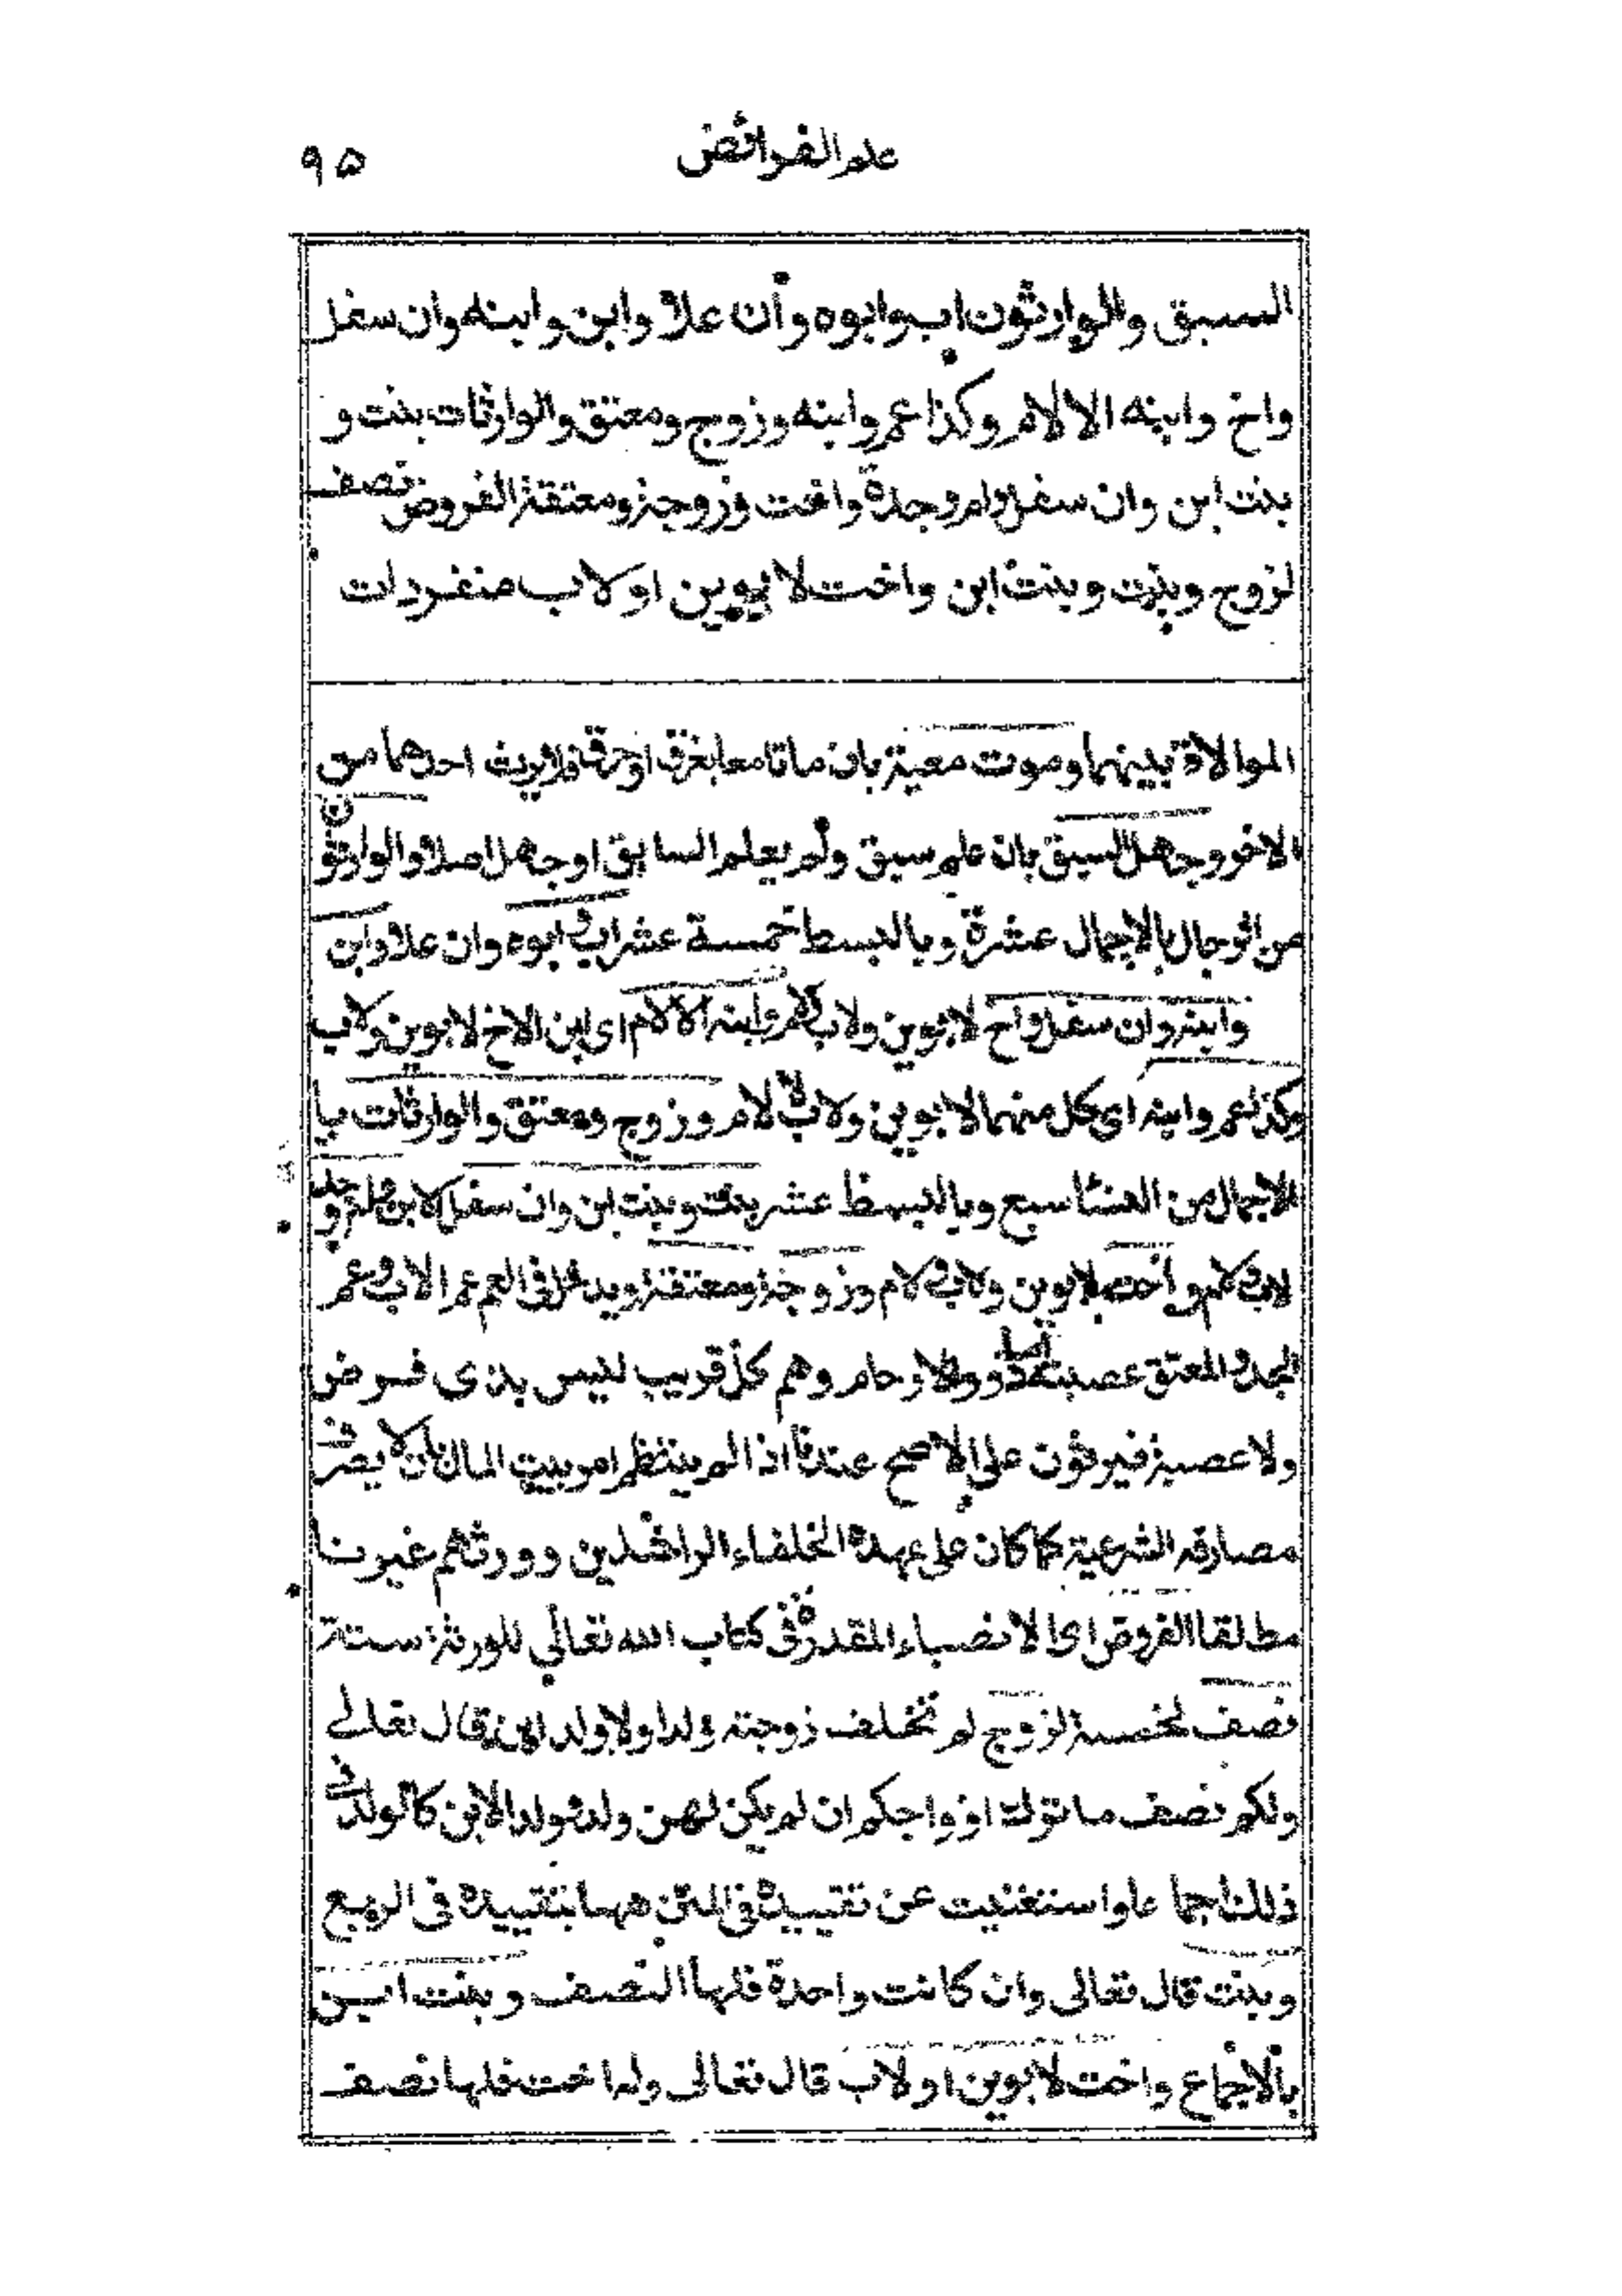 علم الفرائض
٩٥
السبق والوارثون اب وابوه وأن علا وابن وابنه وان سفل
واخ وابنه الا لام وكذا عم وابنه وزوج ومعتق والوارثات بنت و
بنت ابن وان سفل وام وجدة واخت وزوجة ومعتقة الفروض نصف
لزوج وبنت وبنت ابن واخت لابوين او لاب منفردات
الموالاة بينهما وموت معية بان ماتا معا بغرق او حرق فلا يرث احدهما من
الاخر وجهل السبق بان علم سبق ولم يعلم السابق او جهل اصلا والوارثون
من الرجال بالاجمال عشرة وبالبسط خمسة عشر اب وابوه وان علا وابن
وابنه وان سفل واخ لابوين ولاب ولام وابنه الا لام اى ابن الاخ لابوين ولاب
وكذا عم وابنه اى كل منهما لابوين ولاب لا لام وزوج ومعتق والوارثات با
لاجمال من النسا سبع وبالبسط عشر بنت وبنت ابن وان سفل الابن وام وجدة
لاب ولام واخت لابوين ولاب ولام وزوجة ومعتقة ويدخل فى العم عم الاب وعم
الجد والمعتق عصبته ذوو الارحام وهم كل قريب ليس بذى فرض
ولا عصبة فيرثون على الاصح عندنا اذا لم ينتظم امر بيت المال بان لا يصرف
مصارفه الشرعية كما كان على عهده الخلفاء الراشدين وورثهم غيرنا
مطلقا الفروض اى الانصباء المقدرة فى كتاب الله تعالي للورثة ستة
نصف لخمسة لزوج لم تخلف زوجته ولدا ولا ولد ابن قال تعالے
ولكم نصف ما ترك ازواجكم ان لم يكن لهن ولد وولد الابن كالولد فى
ذلك اجماعا واستغنيت عن تقييده فى المتن ههنا بتقييده فى الربع
وبنت قال تعالى وان كانت واحدة فلها النصف وبنت ابن
بالاجماع واخت لابوين او لاب قال تعالى وله اخت فلها نصف